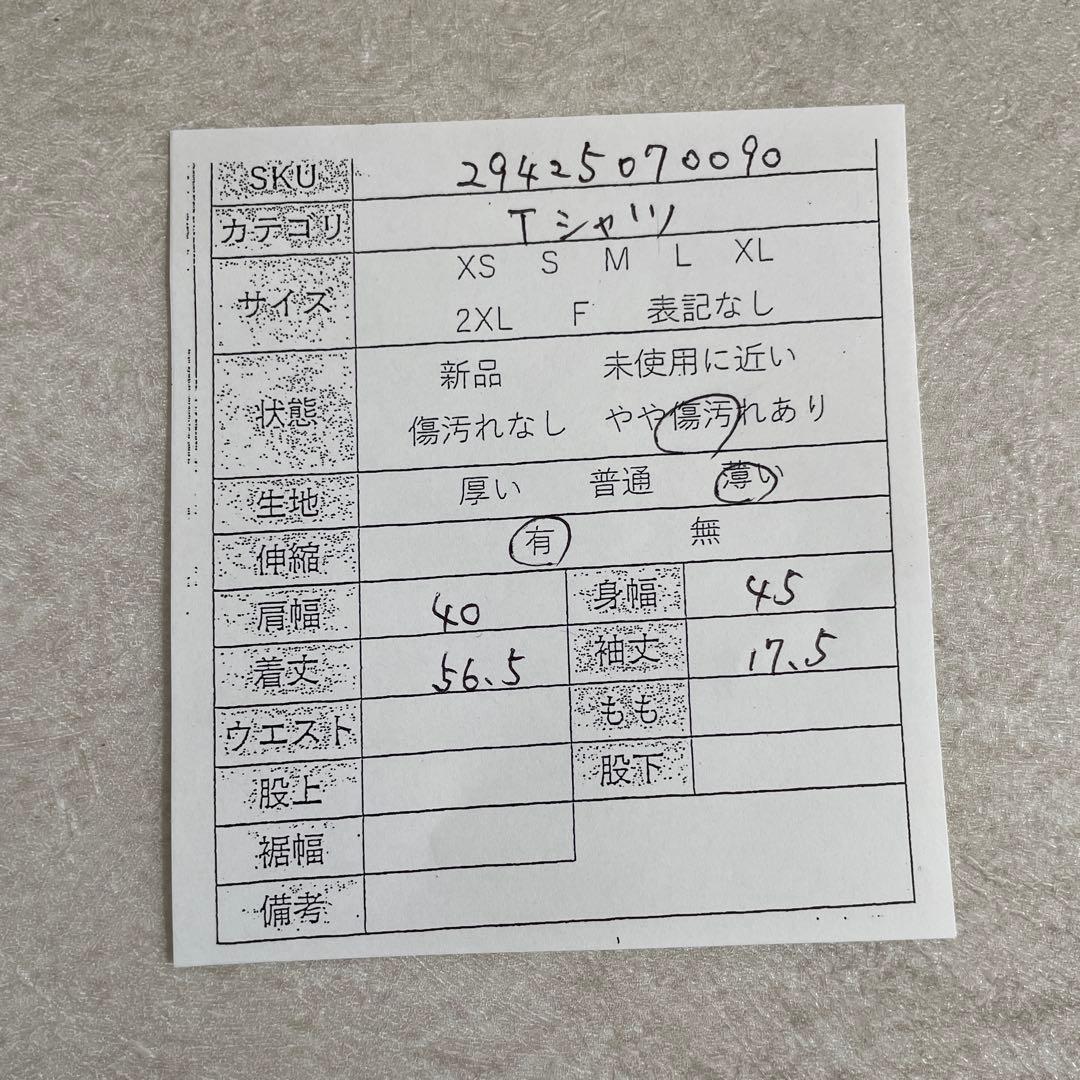 SKU 29425070090
カテゴリ Tシャツ
サイズ XS S M L XL
2XL F 表記なし
状態 新品 未使用に近い
傷汚れなし やや傷汚れあり
生地 厚い 普通 薄い
伸縮 有 無
肩幅 40 身幅 45
着丈 56.5 袖丈 17.5
ウエスト もも
股上 股下
裾幅
備考